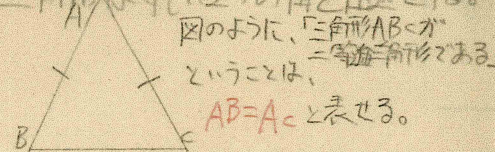 A
図のように、「三角形ABCが
二等辺三角形である」
ということは、
AB=Acと表せる。
B
C